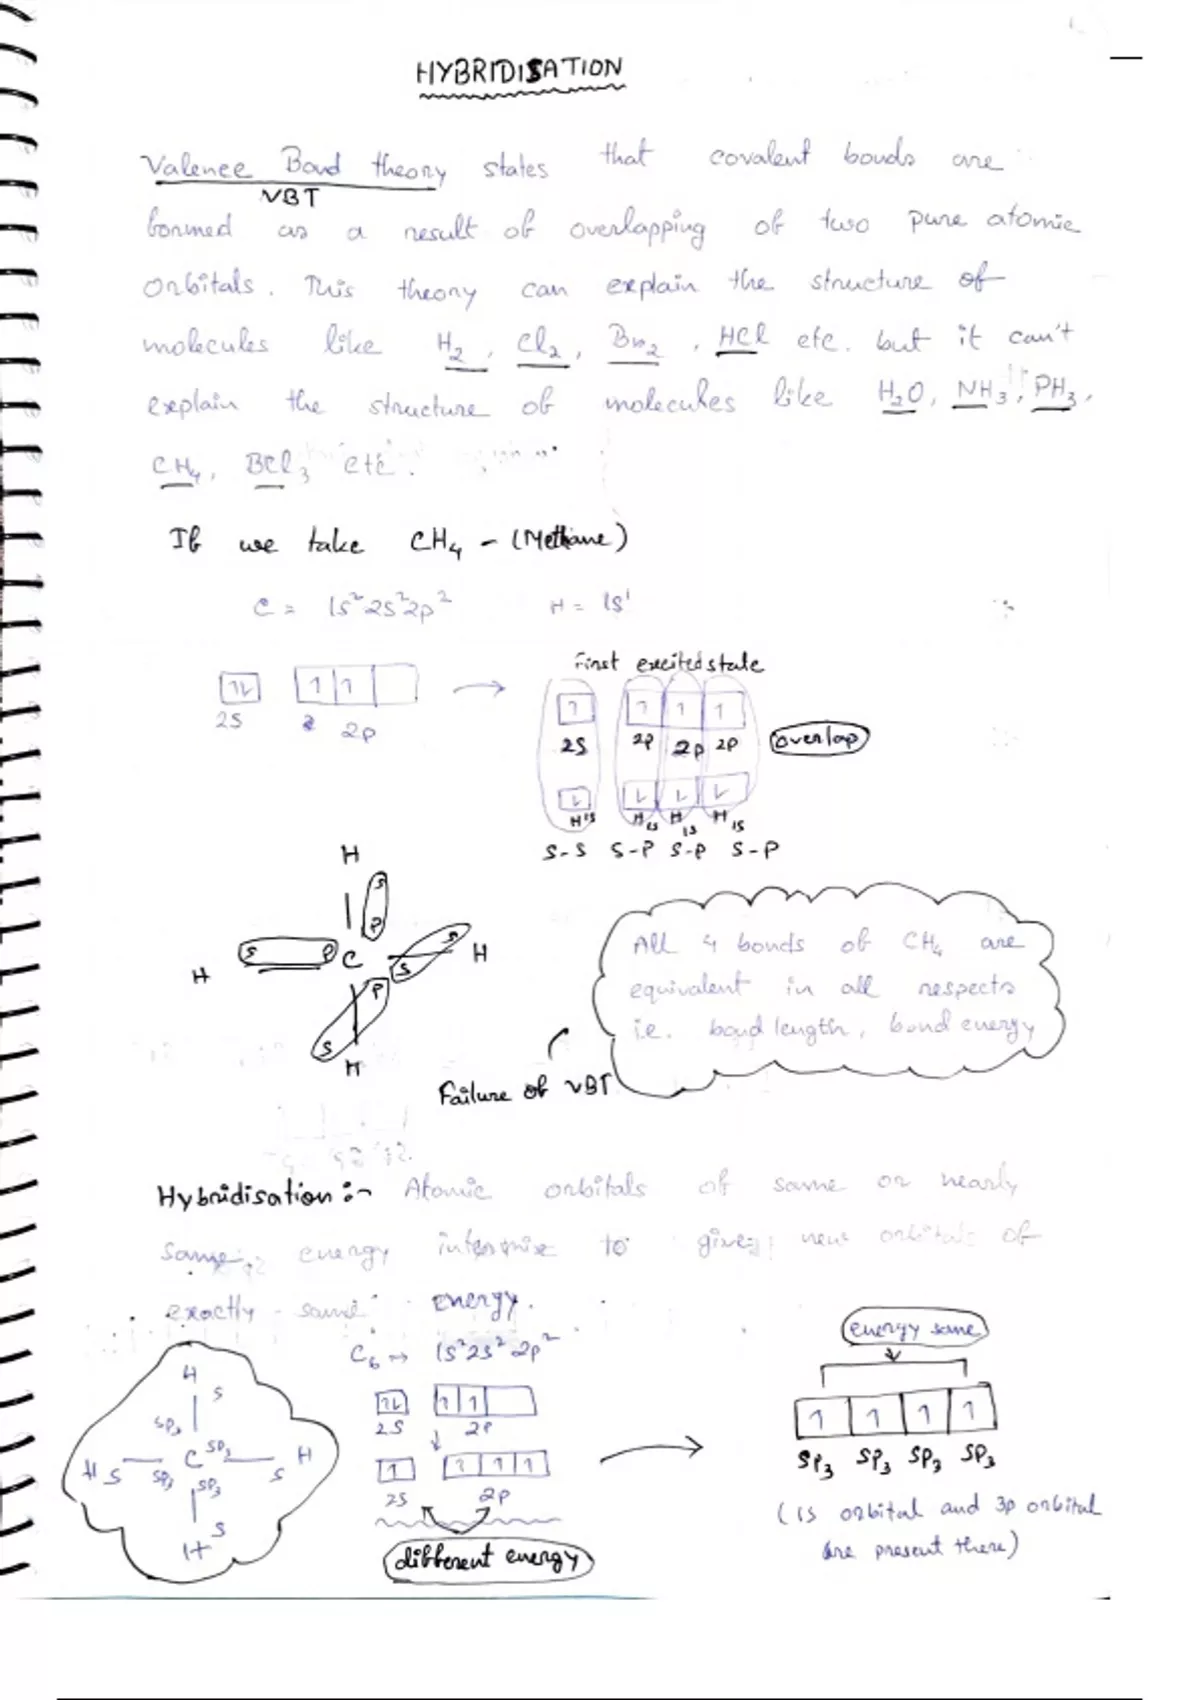 HYBRIDISATION
Valence Bond theory states that covalent bonds are
VBT
formed as a result of overlapping of two pure atomic
orbitals. This theory can explain the structure of
molecules like H₂, Cl₂, Br₂, HCl etc. but it can't
explain the structure of molecules like H₂O, NH₃, PH₃,
CH₄, BCl₃ etc.
If we take CH₄ - (Methane)
C = 1s²2s²2p² H = 1s¹
First excited state
1↓ 1 1 → 1 1 1 1
2S 2p 2S 2p 2p 2p overlap
H1s H1s H1s H1s
S-S S-P S-P S-P
H
S
P
S P C S S H
H
P
S
H
All 4 bonds of CH₄ are
equivalent in all respects
i.e. bond length, bond energy
Failure of VBT
Hybridisation:- Atomic orbitals of same or nearly
same energy intermix to give new orbitals of
exactly same energy.
energy same
C₆ → 1s²2s²2p²
1↓ 1 1
2S 2P
1 1 1 1
2S 2p
different energy
1 1 1 1
SP₃ SP₃ SP₃ SP₃
(1S orbital and 3p orbital
are present there)
H
S
SP₃
H S SP₃ C SP₃ S H
SP₃
S
H